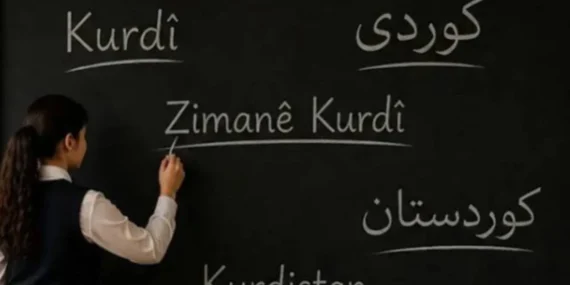 Kurdî
کوردی
Zimanê Kurdî
کوردستان
Kurdistan